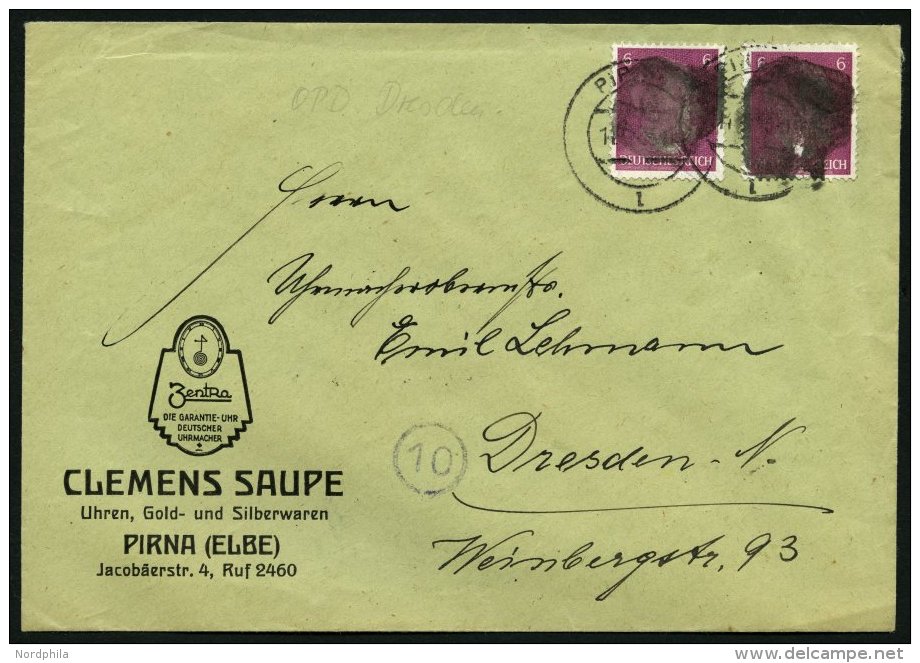 OPD Dresden.
6 6
DEUTSCHES REICH
6 6
REICH
1
1
Herrn
Uhrmacherobermstr.
Emil Lehmann
Dresden-N.
Weinbergstr. 93
10
Zentra
DIE GARANTIE-UHR
DEUTSCHER
UHRMACHER
CLEMENS SAUPE
Uhren, Gold- und Silberwaren
PIRNA (ELBE)
Jacobäerstr. 4, Ruf 2460
Nordphila
delcampe.net